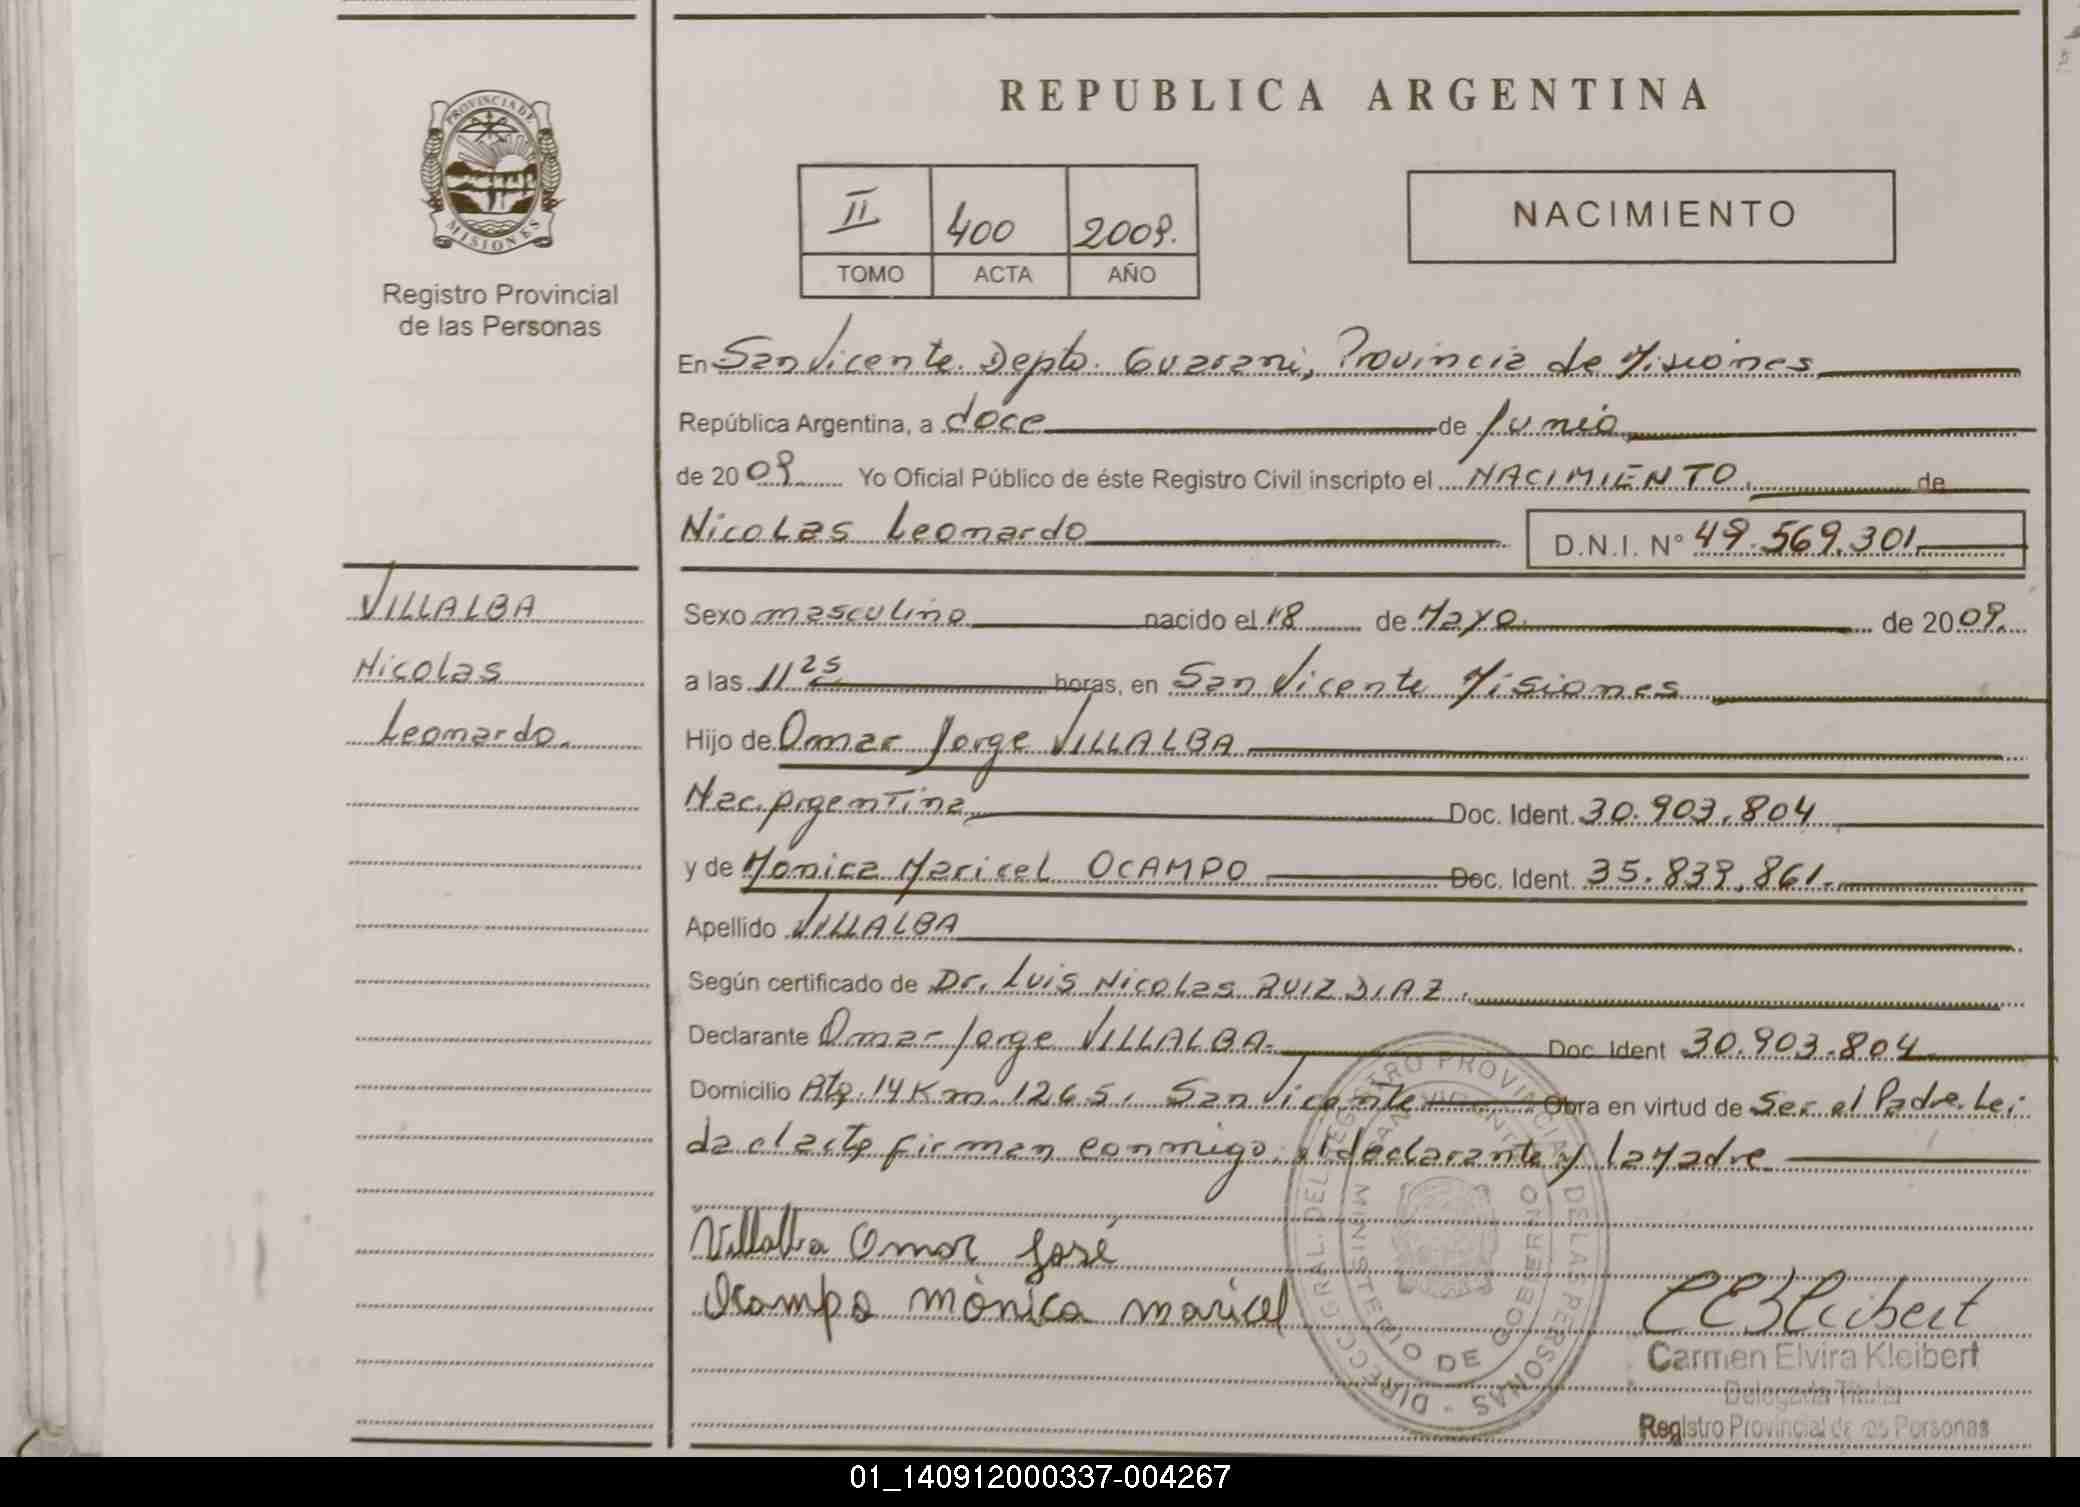 PROVINCIA DE
MISIONES
Registro Provincial
de las Personas
VILLALBA
Nicolas
Leonardo.
REPUBLICA ARGENTINA
II 400 2009.
TOMO ACTA AÑO
NACIMIENTO
En San Vicente. Depto. Guarani, Provincia de Misiones
República Argentina, a doce de Junio
de 2009 Yo Oficial Público de éste Registro Civil inscripto el NACIMIENTO. de
Nicolas Leonardo D.N.I. N° 49.569.301
Sexo masculino nacido el 18 de Mayo de 2009.
a las 11 25 horas, en San Vicente Misiones
Hijo de Omar Jorge VILLALBA
Nac. Argentina Doc. Ident. 30.903.804
y de Monica Maricel OCAMPO Doc. Ident. 35.839.861.
Apellido VILLALBA
Según certificado de Dr. Luis Nicolas RUIZ DIAZ.
Declarante Omar Jorge VILLALBA. Doc. Ident 30.903.804
Domicilio Rta. 14 Km. 1265. San Vicente Obra en virtud de Ser el Padre. Lei
da el acta firman conmigo, el declarante y la Madre
Villalba Omar José
Ocampo mónica maricel
DIRECC. GRAL. DEL REGISTRO PROVINCIAL DE LAS PERSONAS -
MINISTERIO DE GOBIERNO
SAN VICENTE
CEKleibert
Carmen Elvira Kleibert
Delegada Titular
Registro Provincial de las Personas
01_140912000337-004267